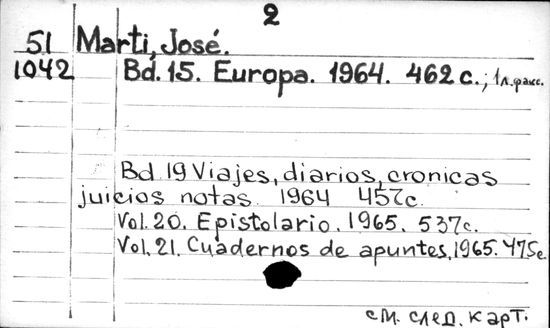 2
51 Marti, José.
1042 Bd. 15. Europa. 1964. 462 c.; 1л.факс.
Bd 19 Viajes, diarios, cronicas
juicios notas. 1964 457c.
Vol. 20. Epistolario. 1965. 537c.
Vol. 21. Cuadernos de apuntes. 1965. 475c.
см. след. карт.